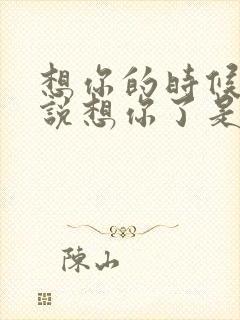 想你的時候
說想你了是
陳山